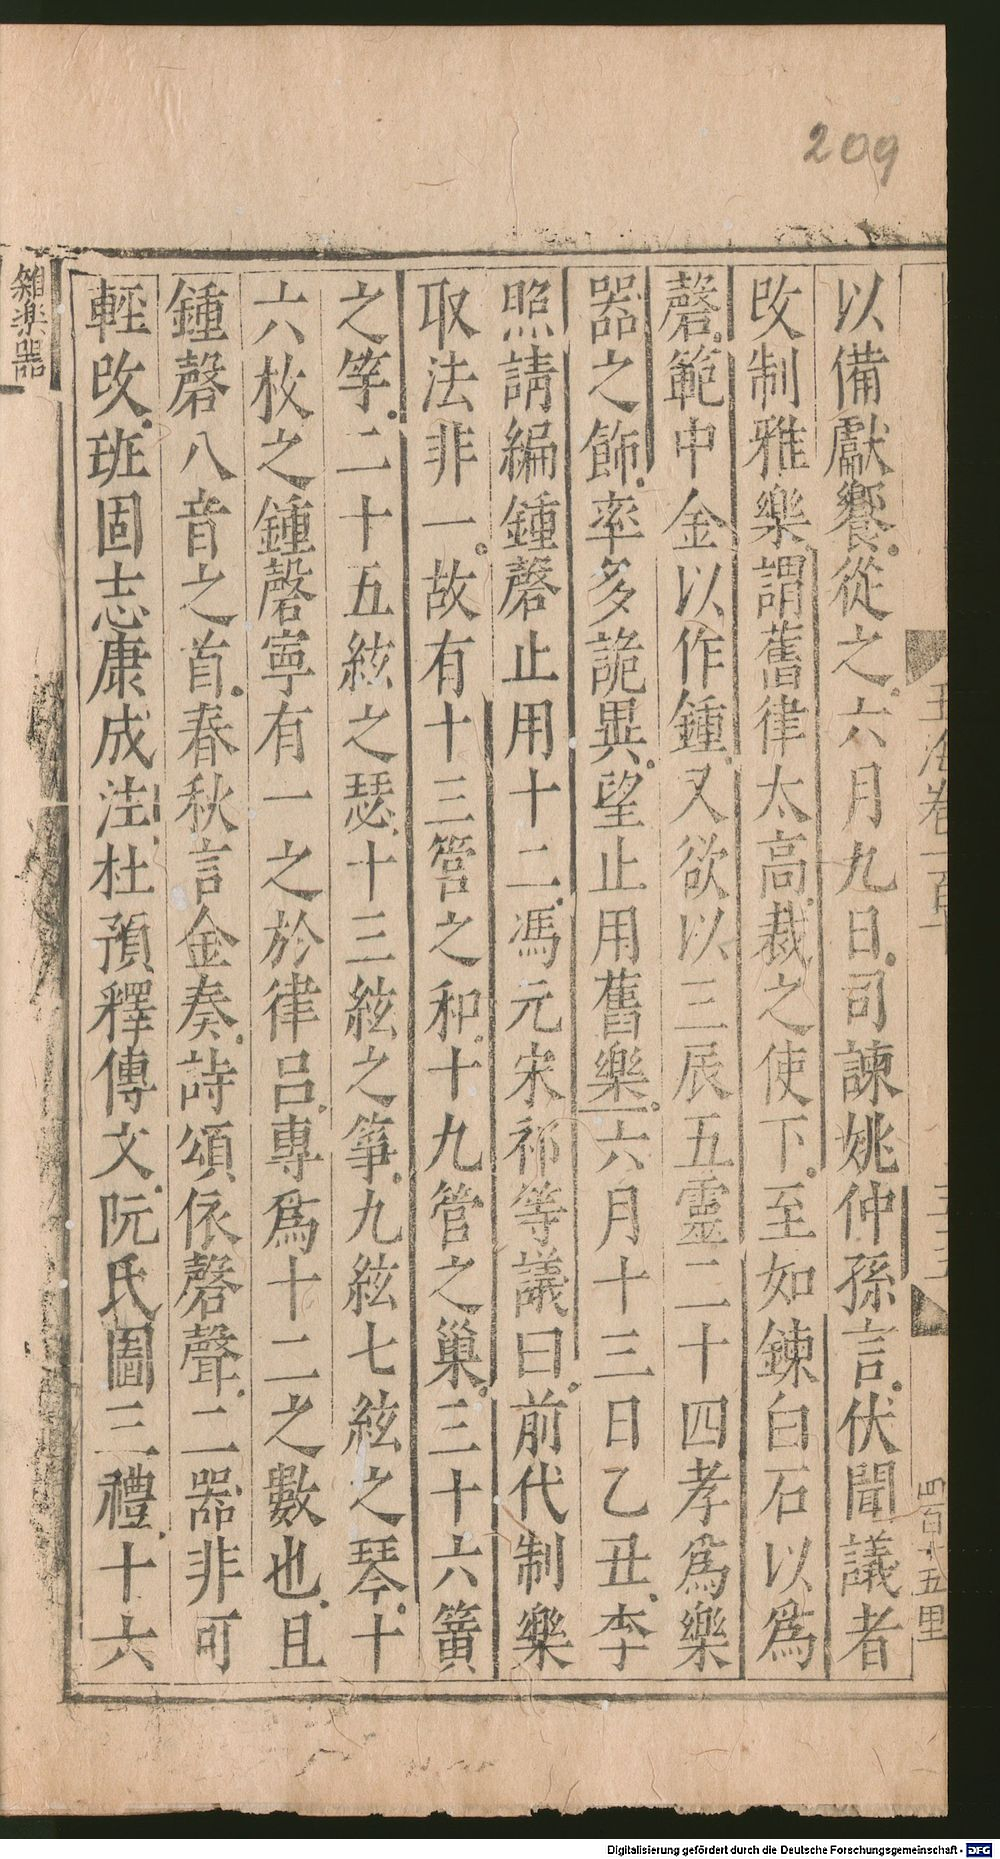 209
以備獻饗從之六月九日司諫姚仲孫言伏聞議者
改制雅樂謂舊律太高裁之使下至如鍊白石以爲
磬範中金以作鍾又欲以三辰五靈二十四孝爲樂
器之飾率多詭異望止用舊樂六月十三日乙丑李
照請編鍾磬止用十二馮元宋祁等議曰前代制樂
取法非一故有十三管之和十九管之巢三十六簧
之竽二十五絃之瑟十三絃之箏九絃七絃之琴十
六枚之鍾磬寧有一之於律呂專爲十二之數也且
鍾磬八音之首春秋言金奏詩頌依磬聲二器非可
輕改班固志康成注杜預釋傳文阮氏圖三禮十六
雜樂器
Digitalisierung gefördert durch die Deutsche Forschungsgemeinschaft - DFG